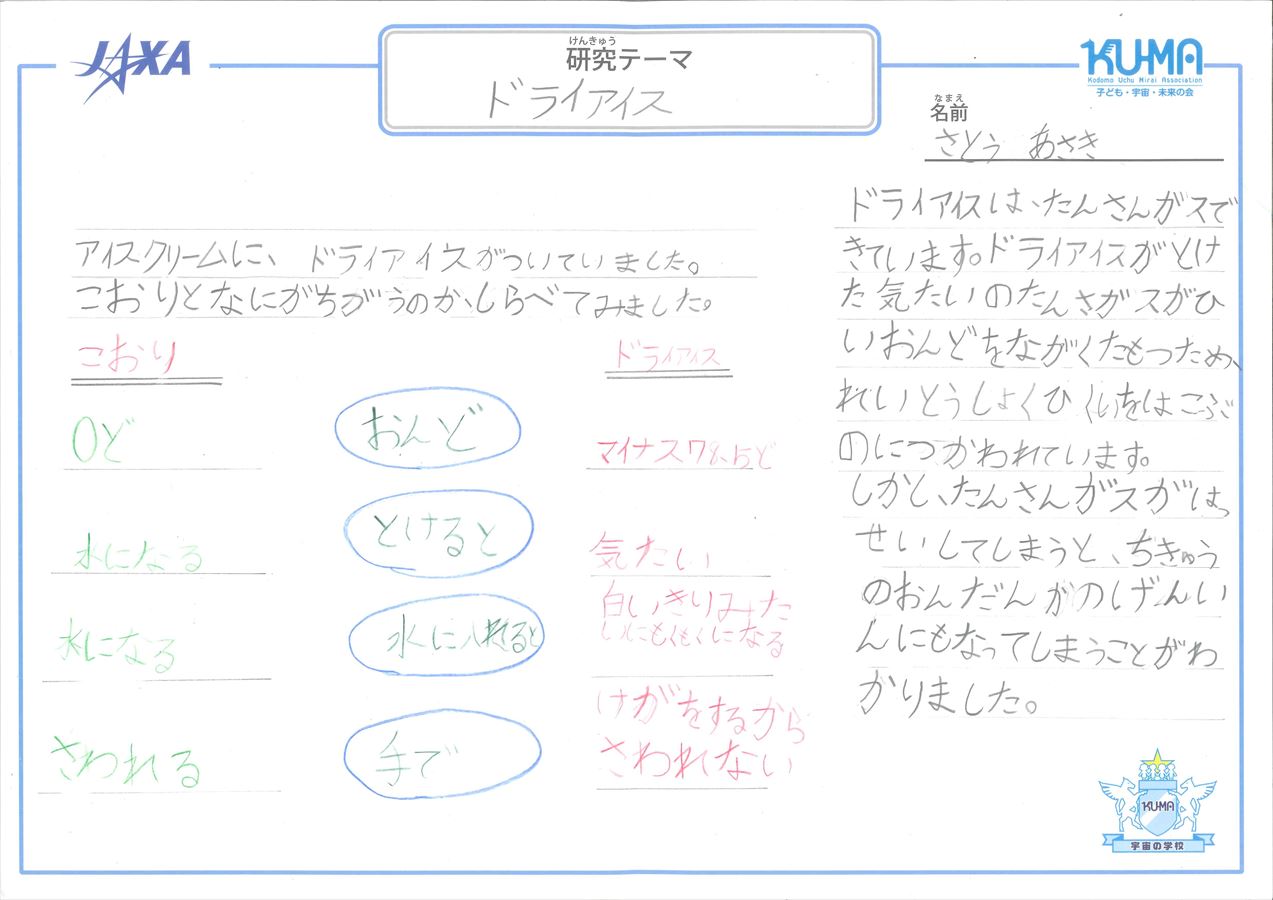 JAXA
けんきゅう
研究テーマ
ドライアイス
KU-MA
Kodomo Uchu Mirai Association
子ども・宇宙・未来の会
なまえ
名前
さとう あさき
アイスクリームに、ドライアイスがついていました。
こおりとなにがちがうのか、しらべてみました。
こおり
ドライアイス
0ど
おんど
マイナス78、5ど
水になる
とけると
気たい
水になる
水に入れると
白いきりみた
いにもくもくになる
さわれる
手で
けがをするから
さわれない
ドライアイスは、たんさんガスで
きています。ドライアイスがとけ
た気たいのたんさガスがひ
いおんどをながくたもつため、
れいとうしょくひくいをはこぶ
のにつかわれています。
しかし、たんさんガスがは
せいしてしまうと、ちきゅう
のおんだんかのしげんい
んにもなってしまうことがわ
かりました。
KU-MA
宇宙の学校